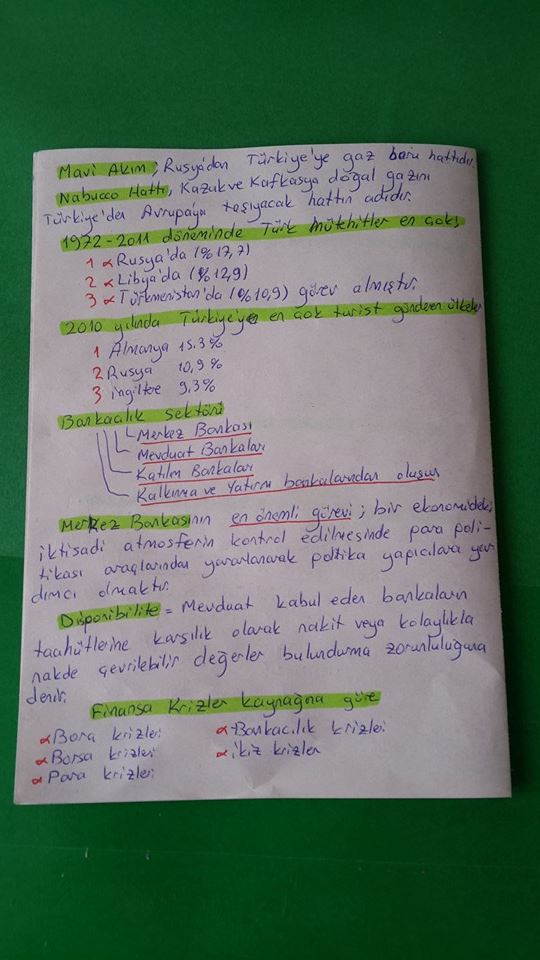 Mavi Akım; Rusya'dan Türkiye'ye gaz boru hattıdır.
Nabucco Hattı, Kazak ve Kafkasya doğal gazını
Türkiye'den Avrupaya taşıyacak hattın adıdır.
1972-2011 döneminde Türk mütehitler en çok;
1 α Rusya'da (%17,7)
2 α Libya'da (%12,9)
3 α Türkmenistan'da (%10,9) görev almıştır.
2010 yılında Türkiye'ye en çok turist gönderen ülkeler
1 Almanya 15.3%
2 Rusya 10,9%
3 ingiltere 9.3%
Bankacılık Sektörü
Merkez Bankası
Mevduat Bankalar
Katılım Bankalar
Kalkınma ve Yatırım bankalarından oluşur
Merkez Bankasının en önemli görevi; bir ekonomideki
iktisadi atmosferin kontrol edilmesinde para poli-
tikası araçlarından yararlanarak politika yapıcılara yar
dımcı olmaktır.
Disponibilite = Mevduat kabul eden bankaların
taahütlerine karşılık olarak nakit veya kolaylıkla
nakde çevrilebilir değerler bulundurma zorunluluğuna
denir.
Finansa Krizler kaynağına göre
α Bora krizleri α Bankacılık krizleri
α Borsa krizleri α ikiz krizler
α Para krizleri